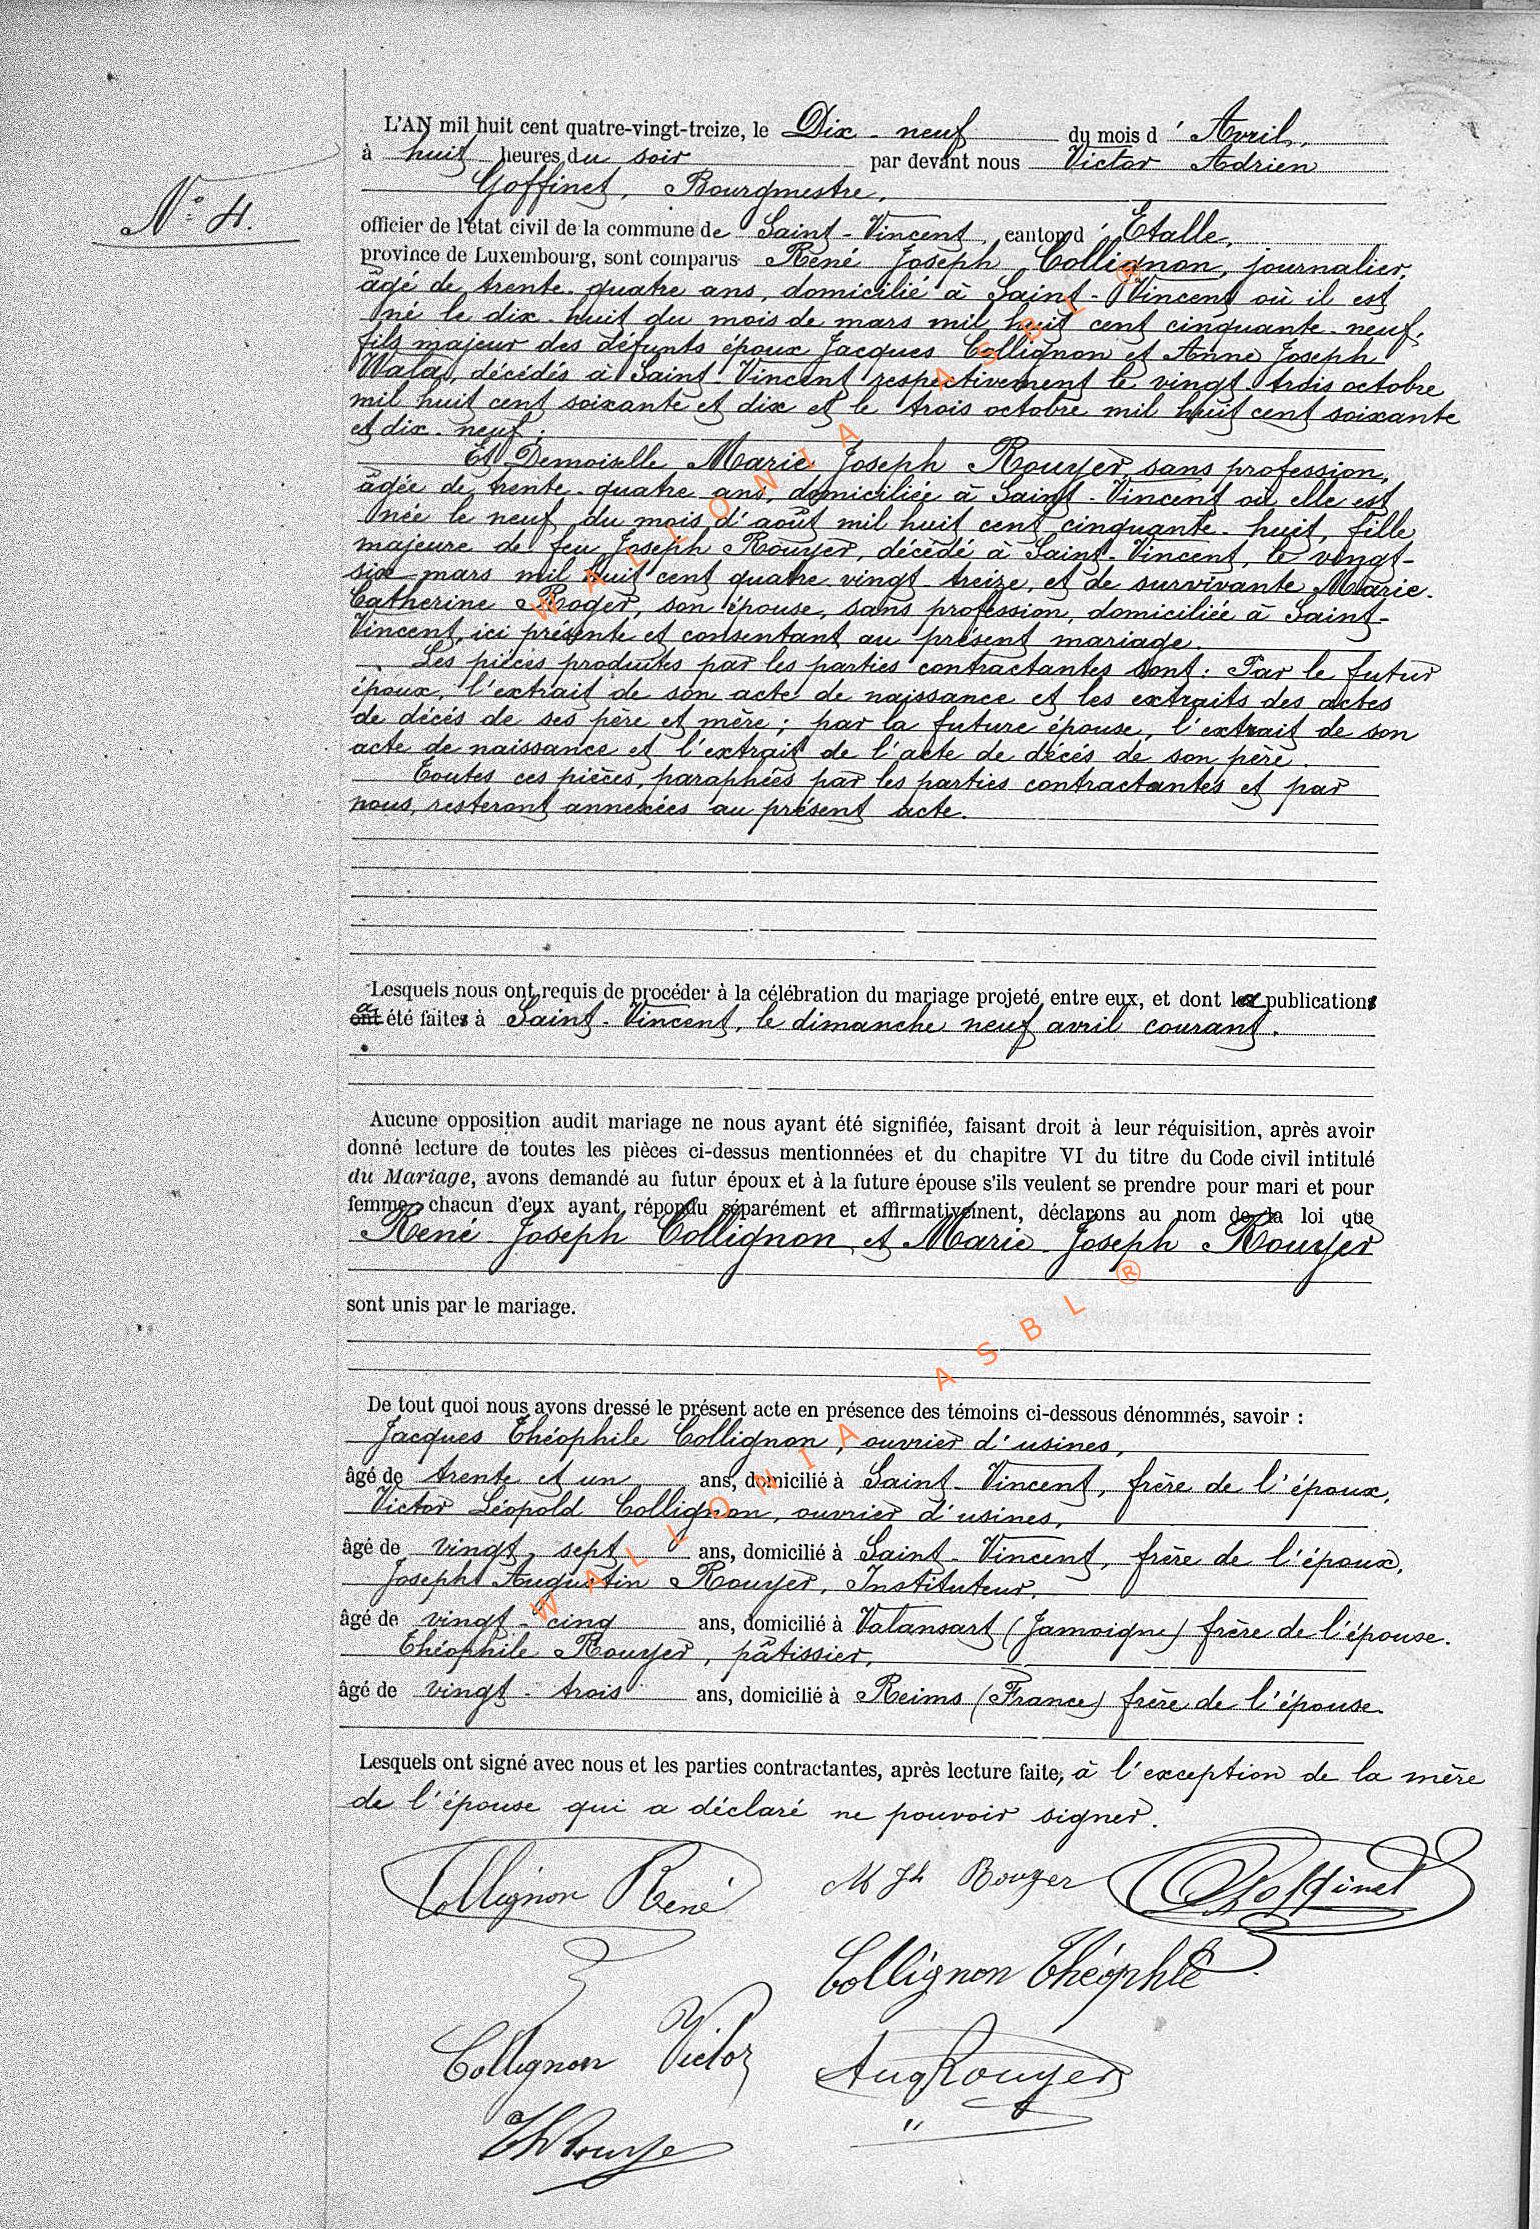 N° 4.
L'AN mil huit cent quatre-vingt-treize, le Dix-neuf du mois d' Avril,
à huit heures du soir par devant nous Victor Adrien
Goffinet, Bourgmestre,
officier de l'état civil de la commune de Saint-Vincent, canton d' Etalle,
province de Luxembourg, sont comparus René Joseph Collignon, journalier,
âgé de trente-quatre ans, domicilié à Saint-Vincent où il est
né le dix-huit du mois de mars mil huit cent cinquante-neuf,
fils majeur des défunts époux Jacques Collignon et Anne Joseph
Wala, décédés à Saint-Vincent respectivement le vingt-trois octobre
mil huit cent soixante et dix et le trois octobre mil huit cent soixante
et dix-neuf;
Et Demoiselle Marie Joseph Rouyer, sans profession,
âgée de trente-quatre ans, domiciliée à Saint-Vincent où elle est
née le neuf du mois d'août mil huit cent cinquante-huit, fille
majeure de feu Joseph Rouyer, décédé à Saint-Vincent, le vingt-
six mars mil huit cent quatre-vingt-treize, et de survivante Marie-
Catherine Roger, son épouse, sans profession, domiciliée à Saint-
Vincent, ici présente et consentant au présent mariage.
Les pièces produites par les parties contractantes sont: Par le futur
époux, l'extrait de son acte de naissance et les extraits des actes
de décès de ses père et mère; par la future épouse, l'extrait de son
acte de naissance et l'extrait de l'acte de décès de son père.
Toutes ces pièces, paraphées par les parties contractantes et par
nous, resteront annexées au présent acte.
Lesquels nous ont requis de procéder à la célébration du mariage projeté entre eux, et dont la publication
a été faite à Saint-Vincent, le dimanche neuf avril courant.
Aucune opposition audit mariage ne nous ayant été signifiée, faisant droit à leur réquisition, après avoir
donné lecture de toutes les pièces ci-dessus mentionnées et du chapitre VI du titre du Code civil intitulé
du Mariage, avons demandé au futur époux et à la future épouse s'ils veulent se prendre pour mari et pour
femme, chacun d'eux ayant répondu séparément et affirmativement, déclarons au nom de la loi que
René-Joseph Collignon et Marie-Joseph Rouyer
sont unis par le mariage.
De tout quoi nous avons dressé le présent acte en présence des témoins ci-dessous dénommés, savoir :
Jacques Théophile Collignon, ouvrier d'usines,
âgé de trente et un ans, domicilié à Saint-Vincent, frère de l'époux,
Victor Léopold Collignon, ouvrier d'usines,
âgé de vingt-sept ans, domicilié à Saint-Vincent, frère de l'époux,
Joseph Augustin Rouyer, Instituteur,
âgé de vingt-cinq ans, domicilié à Valansart (Jamoigne) frère de l'épouse.
Théophile Rouyer, pâtissier,
âgé de vingt-trois ans, domicilié à Reims (France) frère de l'épouse.
Lesquels ont signé avec nous et les parties contractantes, après lecture faite, à l'exception de la mère
de l'épouse qui a déclaré ne pouvoir signer.
Collignon René M Jh Rouyer Goffinet
Collignon Théophile
Collignon Victor Aug Rouyer
Th Rouye
WALLONIA ASBL ®
WALLONIA ASBL ®